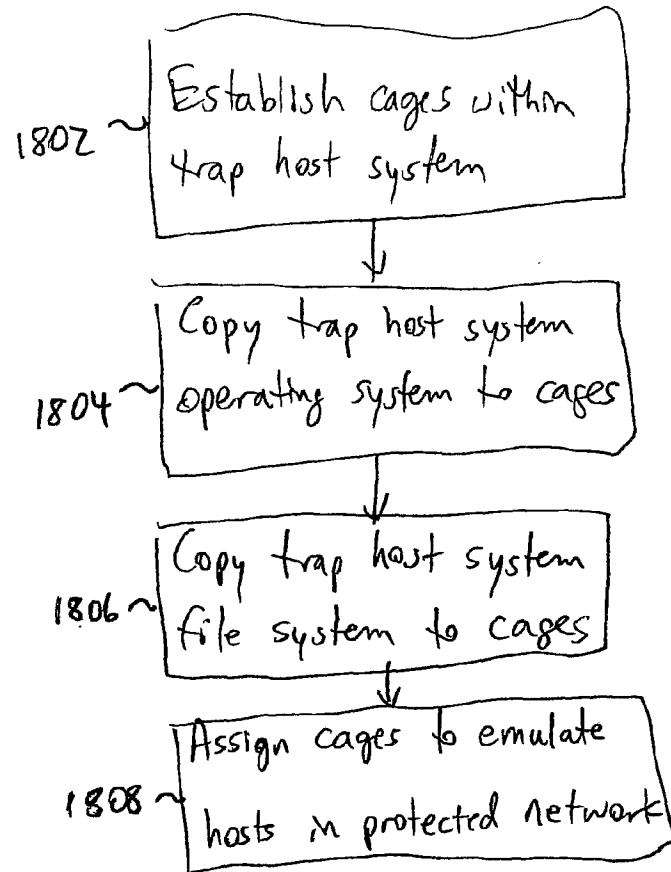 Establish cages within
1802
trap host system
Copy trap host system
1804
operating system to cages
Copy trap host system
1806
file system to cages
Assign cages to emulate
1808
hosts in protected network